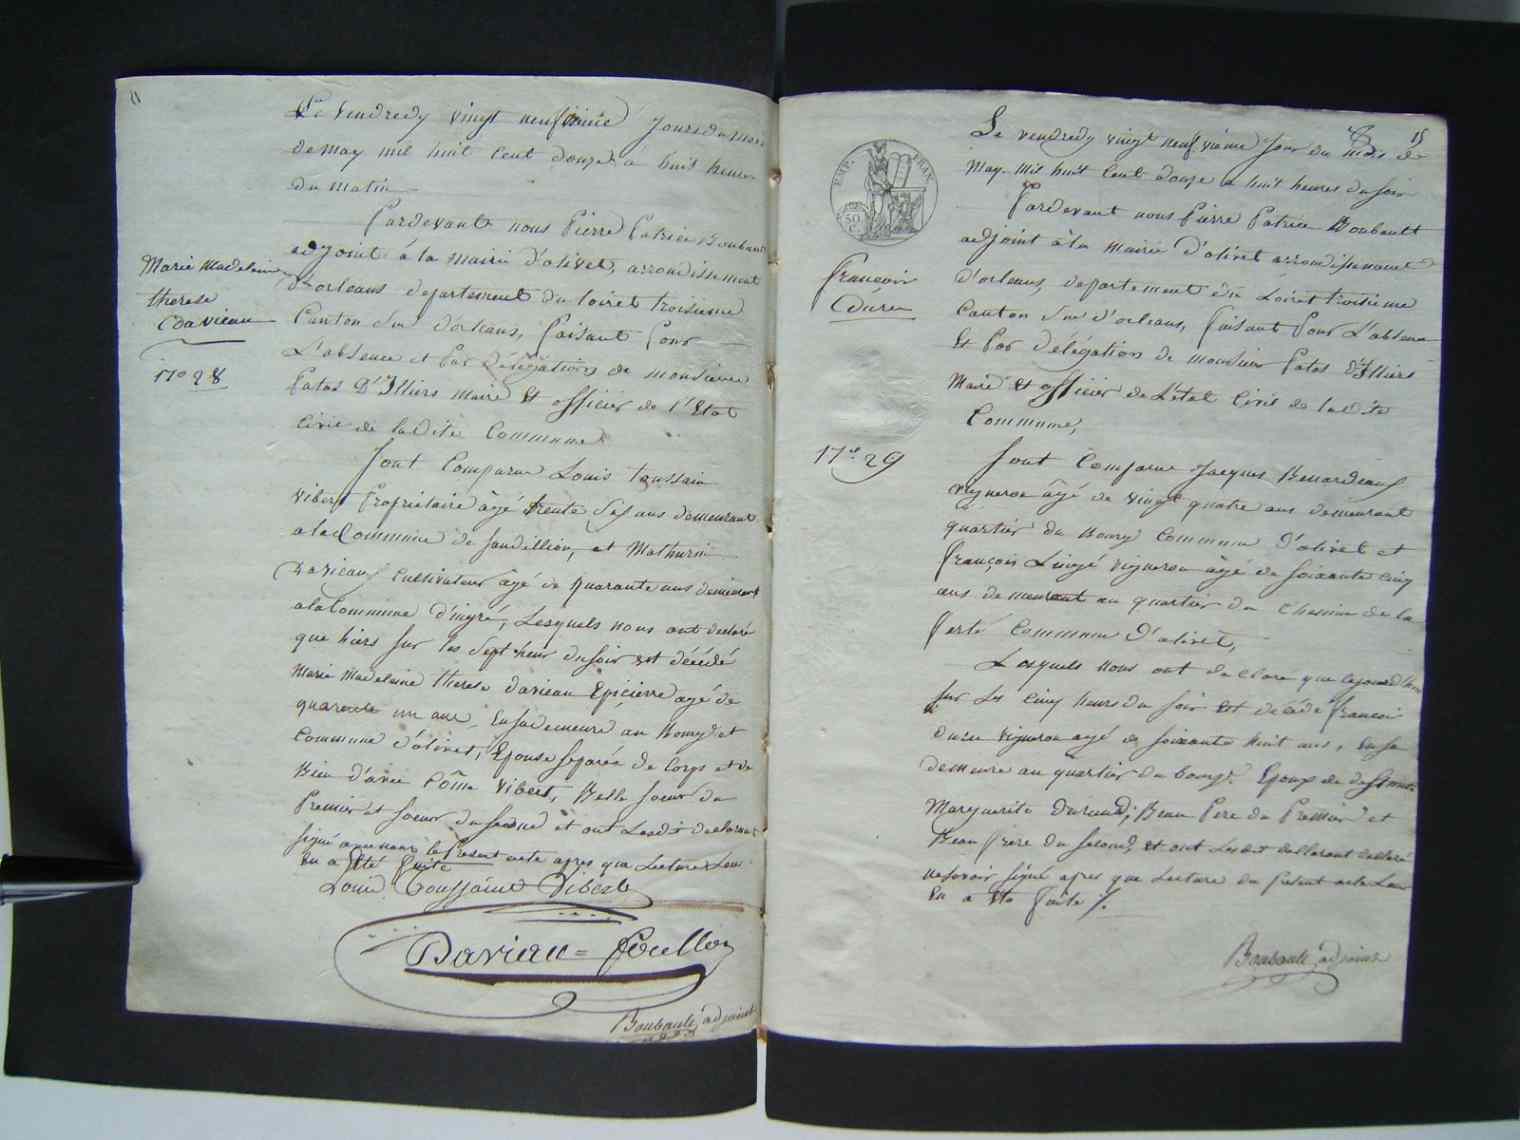 Le Vendredy vingt neufvieme Jours du mois
de may mil huit Cent douze a huit heures
du matin
Pardevant nous Pierre Patrice Boubault
adjoint à la mairie d'olivet, arrondissement
d'orleans departement du loiret troisieme
Canton Sud d'orleans, faisant Pour
L'absence et Par délégation de monsieur
Patas D'Illiers maire Et officier de l'Etat
Civil de ladite Commune
Sont Comparu Louis toussain
Vibert Propriétaire âgé trente ans demeurant
a la Commune de Sandillion, et Mathurin
Davieau Cultivateur âgé de quarante ans demeurant
a la Commune d'ingré, Lesquels nous ont declaré
que hiers Sur les Sept heur du soir est décédé
Marie Madelaine therese davieau Epicierre agé de
quarante un ans, En sa demeure au bourg et
Commune d'olivet, Epouse Separée de Corps et de
Bien d'avec Côme Vibert, Belle Soeur du
Premier et Soeur du Second et ont Lesdit declarant
Signé avec nous le Present acte apres que Lecture Leur
En a Eté faite
Louis Toussaint Vibert
Davieau = Foullon
Boubault adjoint
Marie Madelaine
therese
davieau
n° 28
15
Le vendredy vingt neuf vieme Jour du mois de
May. Mil huit Cent douze a huit heures du soir
Pardevant nous Pierre Patrice Boubault
adjoint à la mairie d'olivet arrondissement
d'orleans, departement du Loiret troisieme
Canton Sud d'orleans, faisant Pour L'absence
Et Par delégation de monsieur Patas d'Illiers
Maire Et officier de L'état Civil de ladite
Commune,
Sont Comparu Jacques
vigneron âgé de vingt quatre ans demeurant
quartier du Bourg Commune d'olivet et
françois vigneron âgé de soixante cinq
ans demeurant au quartier du Chemin de la
ferté Commune d'olivet,
Lesquels nous ont declaré que cejourd'hui
Sur Les Cinq heures du soir Est décédé françois
vigneron agé de soixante huit ans, En sa
demeure au quartier du bourg. Epoux de deffunte
Marguerite Beau Pere du Premier et
Beau frere du Second, Et ont Lesdit declarant declaré
ne savoir Signé apres que Lecture du present acte Leur
En a Ete faite
Boubault adjoint
EMP. FRAN.
50
C.
francois
n° 29